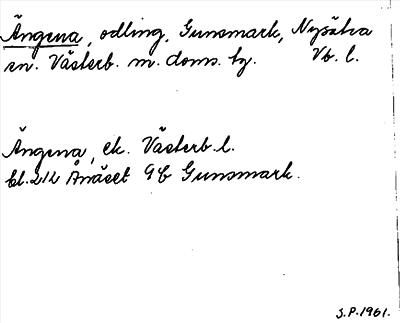 Ängena, odling, Gunsmark, Nysätra
sn. Västerb. m. doms. hg. Vb. l.
Ängena, ek. Västerb. l.
bl. 21K Ånäset 9b Gunsmark.
S.P. 1961.